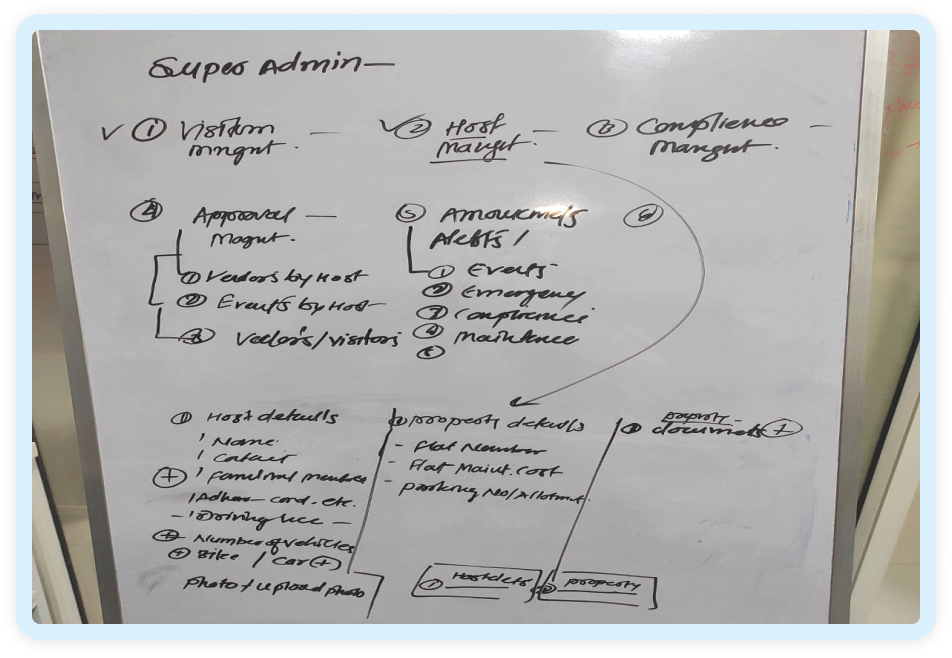 Super Admin —
✓ ① Visitors —
mngnt.
✓ ② Host —
Mangt.
③ Complience —
Mangmt.
④ Approval —
Magnt.
① Vendors by Host
② Events by Host
③ Vedors/visitors
⑤ Anouncmets
Alerts /
① Events
② Emergency
③ Complience
④ Maintence
⑤
⑥
① Host details
' Name
' Contact
+ ' Family member
' Adhar card. etc.
- ' Driving lice —
+ Number of vehicles
+ Bike / Car (+)
photo / upload photo
② property details
- Flat Number
- Flat Maint. Cost
- parking No/Allotmnt.
③ property
documents +
① Host dets
② property